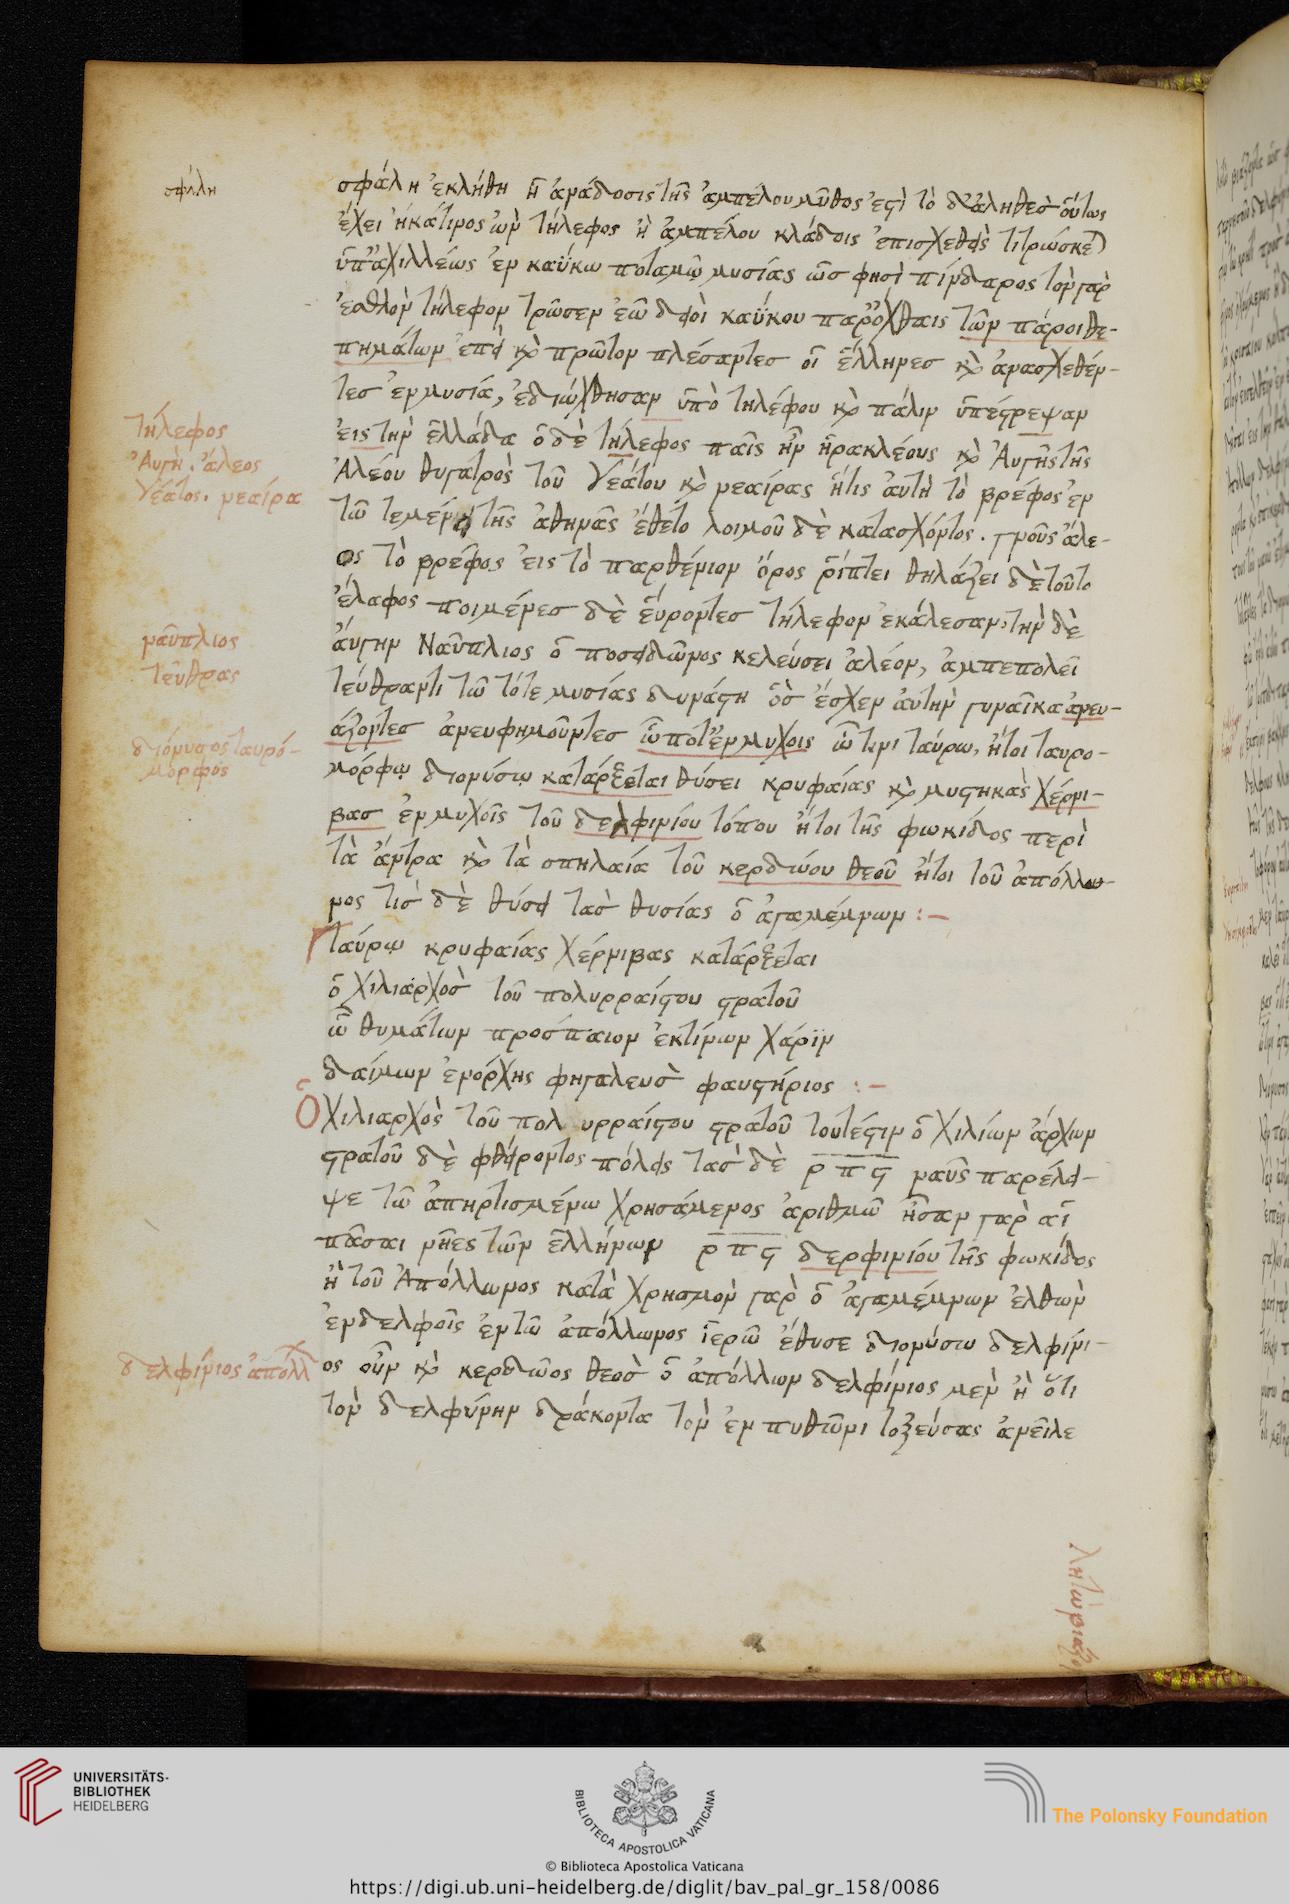 σφάλη
σφάλη ἐκλήθη ἡ ἀνάδοσις τῆς ἀμπέλου μῦθος ἐστὶ τὸ δ' ἀληθὲς οὕτως
ἔχει ἡκάτιρος ὢν τήλεφος ἢ ἀμπέλου κλάδοις ἐπισχεθεὶς τιτρώσκεται
ὑπ' ἀχιλλέως ἐν καΰκω ποταμῶ μυσίας ὥς φησὶ πίνδαρος τὸν γὰρ
ἐσθλὸν τήλεφον τρῶσεν ἐῶ δοὶ καΰκου παρ' ὄχθαις τῶν πάροιθε
πημάτων ἐπεὶ καὶ πρῶτον πλέσαντες οἱ ἕλληνες καὶ ἀνασχεθέν-
τες ἐν μυσία, ἐδιώχθησαν ὑπὸ τηλέφου καὶ πάλιν ὑπέστρεψαν
εἰς τὴν ἑλλάδα ὁ δὲ τήλεφος παῖς ἦν ἡρακλέους καὶ Αὐγῆς τῆς
Ἀλέου θυγατρὸς τοῦ Νεάτου καὶ νεαίρας ἥτις αὐτὴ τὸ βρέφος ἐν
τῶ τεμένει τῆς ἀθηνᾶς ἔθετο λοιμοῦ δὲ κατασχόντος. γνοὺς ἄλε-
ος τὸ βρέφος εἰς τὸ παρθένιον ὄρος ῥίπτει θηλάζει δὲ τοῦτο
ἔλαφος ποιμένες δὲ εὕροντες τήλεφον ἐκάλεσαν, τὴν δὲ
ἄυγην Ναύπλιος ὁ ποσειδῶνος κελεύσει ἀλέον, ἀμπεπολεῖ
τεύθραντι τῶ τότε μυσίας δυνάστη ὃς ἔσχεν αὐτὴν γυναῖκα ἀνευ-
άζοντες ἀνευφημοῦντες ᾧ ποτ' ἐν μυχοις ᾧ τινι ταύρω, ἤτοι ταυρο-
μόρφῳ διονύσῳ κατάρξεται θύσει κρυφαίας καὶ μυστηκὰς χέρνι-
βας ἐν μυχοῖς τοῦ δελφινίου τόπου ἤτοι τῆς φωκίδος περὶ
τὰ ἄντρα καὶ τὰ σπηλαία τοῦ κερδώου θεοῦ ἤτοι τοῦ ἀπόλλω-
νος τὶς δὲ θύσει τὰς θυσίας ὁ ἀγαμέμνων :–
Ταύρῳ κρυφαίας χέρνιβας κατάρξεται
ὁ χιλίαρχὸς τοῦ πολυρραίστου στρατοῦ
ᾧ θυμάτων προσπαιον ἐκτίνων χάριν
δαίμων ἐνόρχης φιγαλευς φαυστήριος :–
Ὁ χιλιαρχὸς τοῦ πολυρραίστου στρατοῦ τουτέστιν ὁ χιλίων ἄρχων
στρατοῦ δὲ φθείροντος πόλεις τὰς δὲ ρπς ναῦς παρέλει-
ψε τῶ ἀπηρτισμένω χρησάμενος ἀριθμῶ ἦσαν γὰρ αἱ
πᾶσαι νῆες τῶν ἑλλήνων ρπς δερφινίου τῆς φωκίδος
ἢ τοῦ Ἀπόλλωνος κατὰ χρησμὸν γὰρ ὁ ἀγαμέμνων ἐλθὼν
ἐν δελφοῖς ἐν τῶ ἀπόλλωνος ἱερῶ ἔθυσε διονύσω δελφίνι-
ος οὖν καὶ κερδῶος θεὸς ὁ ἀπόλλων δελφίνιος μὲν ἢ ὅτι
τὸν δελφύνην δράκοντα τὸν ἐν πυθῶνι τοξεύσας ἀνεῖλε
τήλεφος
Αὐγὴ. ἄλεος
Νέατος. νεαίρα
ναῦπλιος
τεῦθρας
διόνυσος ταυρό-
μορφος
δελφίνιος ἀπόλλ
UNIVERSITÄTS-
BIBLIOTHEK
HEIDELBERG
BIBLIOTECA APOSTOLICA VATICANA
The Polonsky Foundation
© Biblioteca Apostolica Vaticana
https://digi.ub.uni-heidelberg.de/diglit/bav_pal_gr_158/0086